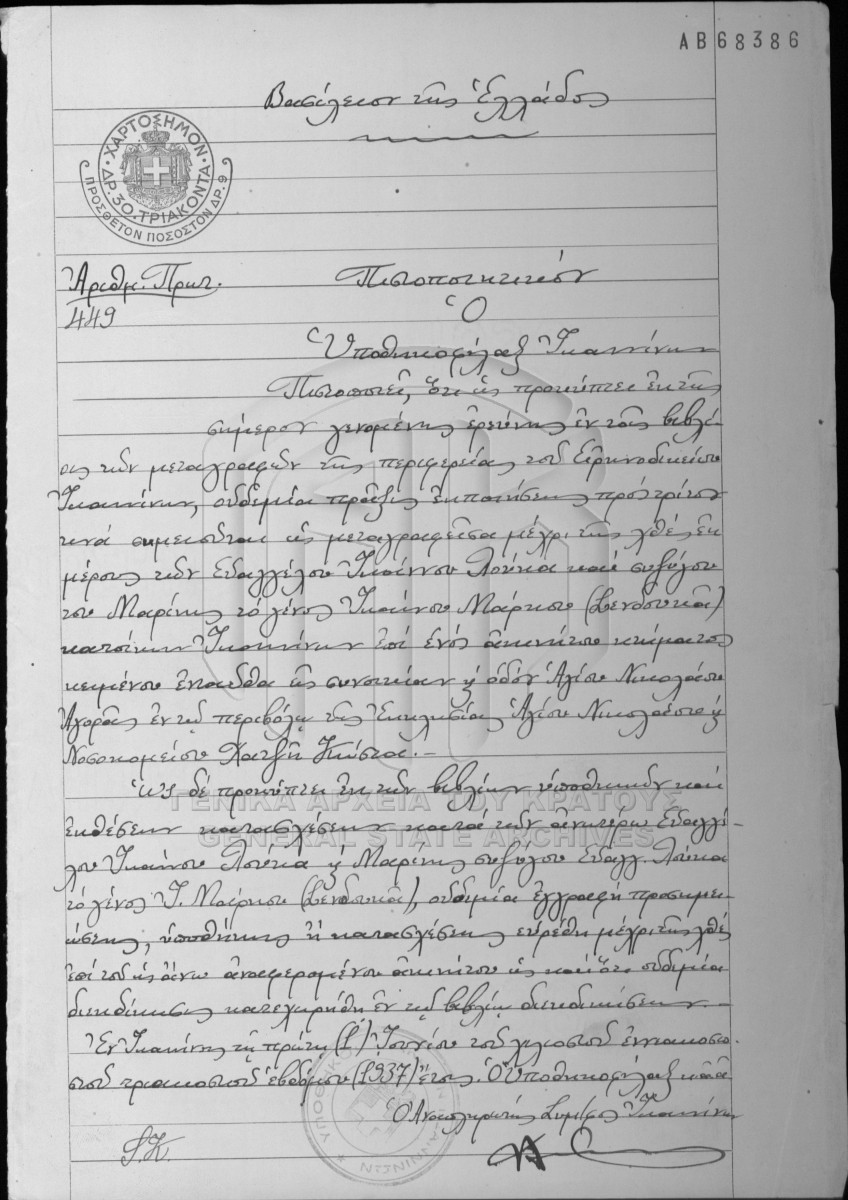 ΑΒ68386
Βασίλειον τῆς Ἑλλάδος
ΧΑΡΤΟΣΗΜΟΝ
ΔΡ. 30. ΤΡΙΑΚΟΝΤΑ
ΠΡΟΣΘΕΤΟΝ ΠΟΣΟΣΤΟΝ ΔΡ. 9
Ἀριθμ. Πρωτ.
449
Πιστοποιητικόν
Ὁ
Ὑποθηκοφύλαξ Ἰωαννίνων
Πιστοποιεῖ, ὅτι ὡς προκύπτει ἐκ τῆς
σήμερον γενομένης ἐρεύνης ἐν τοῖς βιβλί-
οις τῶν μεταγραφῶν τῆς περιφερείας τοῦ Εἰρηνοδικείου
Ἰωαννίνων, οὐδεμία πρᾶξις ἐκποιήσεως πρός τρίτον
τινά σημειοῦται ὡς μεταγραφεῖσα μέχρι τῆς χθές ἐκ
μέρους τῶν Εὐαγγέλου Ἰωάννου Λούκα καί συζύγου
του Μαρίνης τό γένος Ἰωάννου Μάρκου (Σενδουκᾶ)
κατοίκων Ἰωαννίνων ἐπί ἑνός ἀκινήτου κτήματος
κειμένου ἐνταῦθα εἰς συνοικίαν ἤ ὁδόν Ἁγίου Νικολάου
Ἀγορᾶς ἐν τῷ περιβόλῳ τῆς Ἐκκλησίας Ἁγίου Νικολάου ἤ
Νοσοκομείου Χατζῆ Κώστα. –
Ὡς δέ προκύπτει ἐκ τῶν βιβλίων ὑποθηκῶν καί
ἐκθέσεων κατασχέσεων κατά τῶν ἀνωτέρω Εὐαγγέ-
λου Ἰωάννου Λούκα ἤ Μαρίνης συζύγου Εὐαγγ. Λούκα
τό γένος Ἰ. Μάρκου (Σενδουκᾶ), οὐδεμία ἐγγραφή προσημει-
ώσεως, ὑποθήκης ἤ κατασχέσεως εὑρέθη μέχρι τῆς χθές
ἐπί τοῦ ὡς ἄνω ἀναφερομένου ἀκινήτου ὡς καί ὅτι οὐδεμία
διεκδίκησις κατεχωρήθη ἐν τῷ βιβλίῳ διεκδικήσεων. –
Ἐν Ἰωαννίνοις τῇ πρώτῃ (1) Ἰουνίου τοῦ χιλιοστοῦ ἐννιακοσιο-
στοῦ τριακοστοῦ ἑβδόμου (1937) ἔτους. Ὁ Ὑποθηκοφύλαξ
Ὁ Ἀναπληρωτής Συμ/φος Ἰωαννίνων
Σ.Κ.
ΓΕΝΙΚΑ ΑΡΧΕΙΑ ΤΟΥ ΚΡΑΤΟΥΣ
GENERAL STATE ARCHIVES